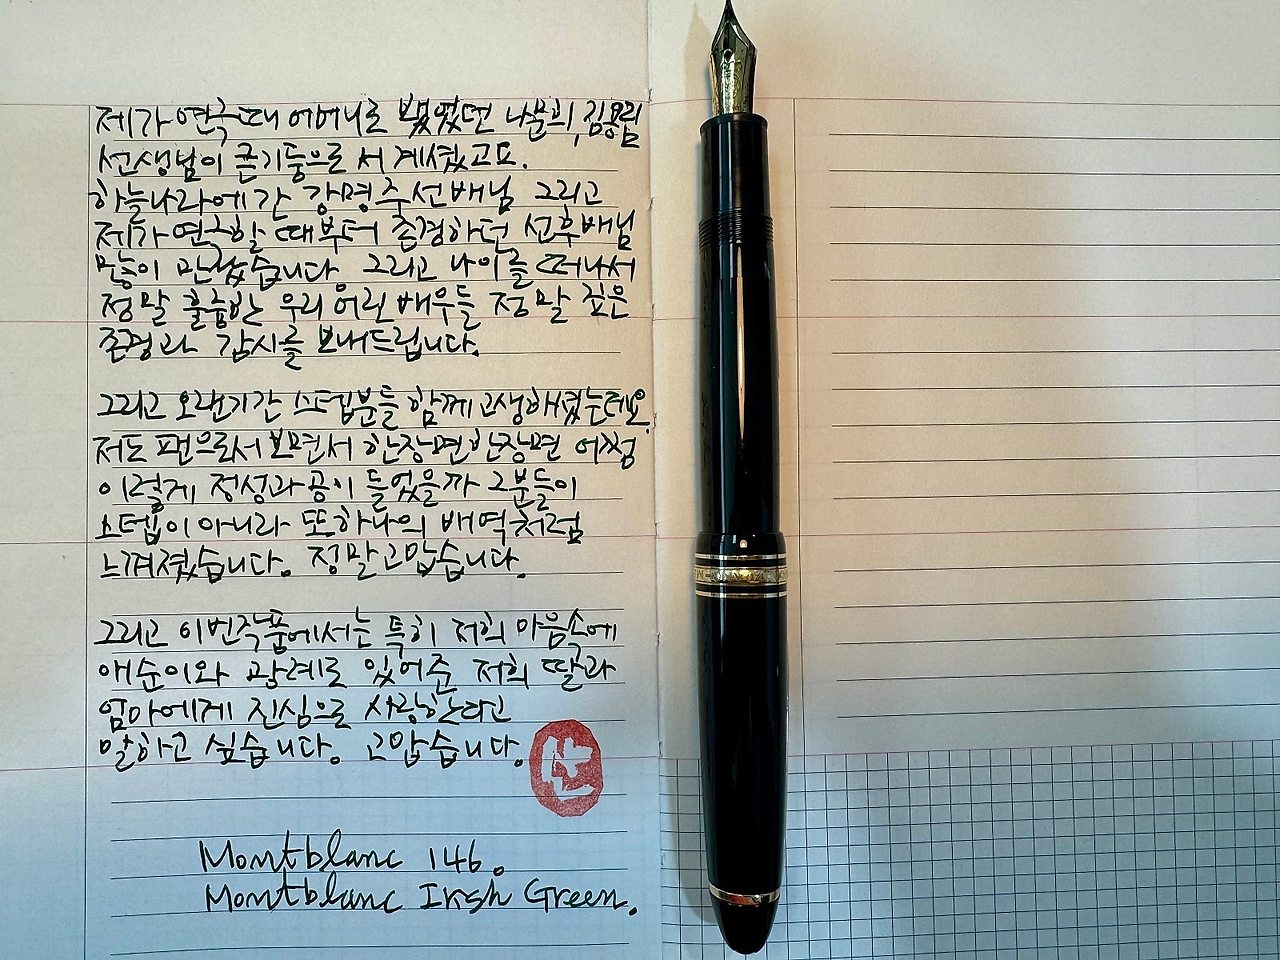 제가 연극때 어머니로 뵀었던 나문희, 김용림
선생님이 큰기둥으로 서 계셨고요.
하늘나라에 간 강명주 선배님 그리고
제가 연극할 때부터 존경하던 선후배님
많이 만났습니다. 그리고 나이를 떠나서
정말 훌륭한 우리 어린 배우들 정말 깊은
존경과 감사를 보내드립니다.
그리고 오랜기간 스텝분들 함께 고생하셨는데요.
저도 팬으로서 보면서 한장면 한장면 어쩜
이렇게 정성과 공이 들었을까 그분들이
스텝이 아니라 또 하나의 배역처럼
느껴졌습니다. 정말 고맙습니다.
그리고 이번작품에서는 특히 저희 마음속에
애순이와 관례로 있어준 저희 딸과
엄마에게 진심으로 사랑한다고
말하고 싶습니다. 고맙습니다.
Montblanc 146.
Montblanc Irish Green.